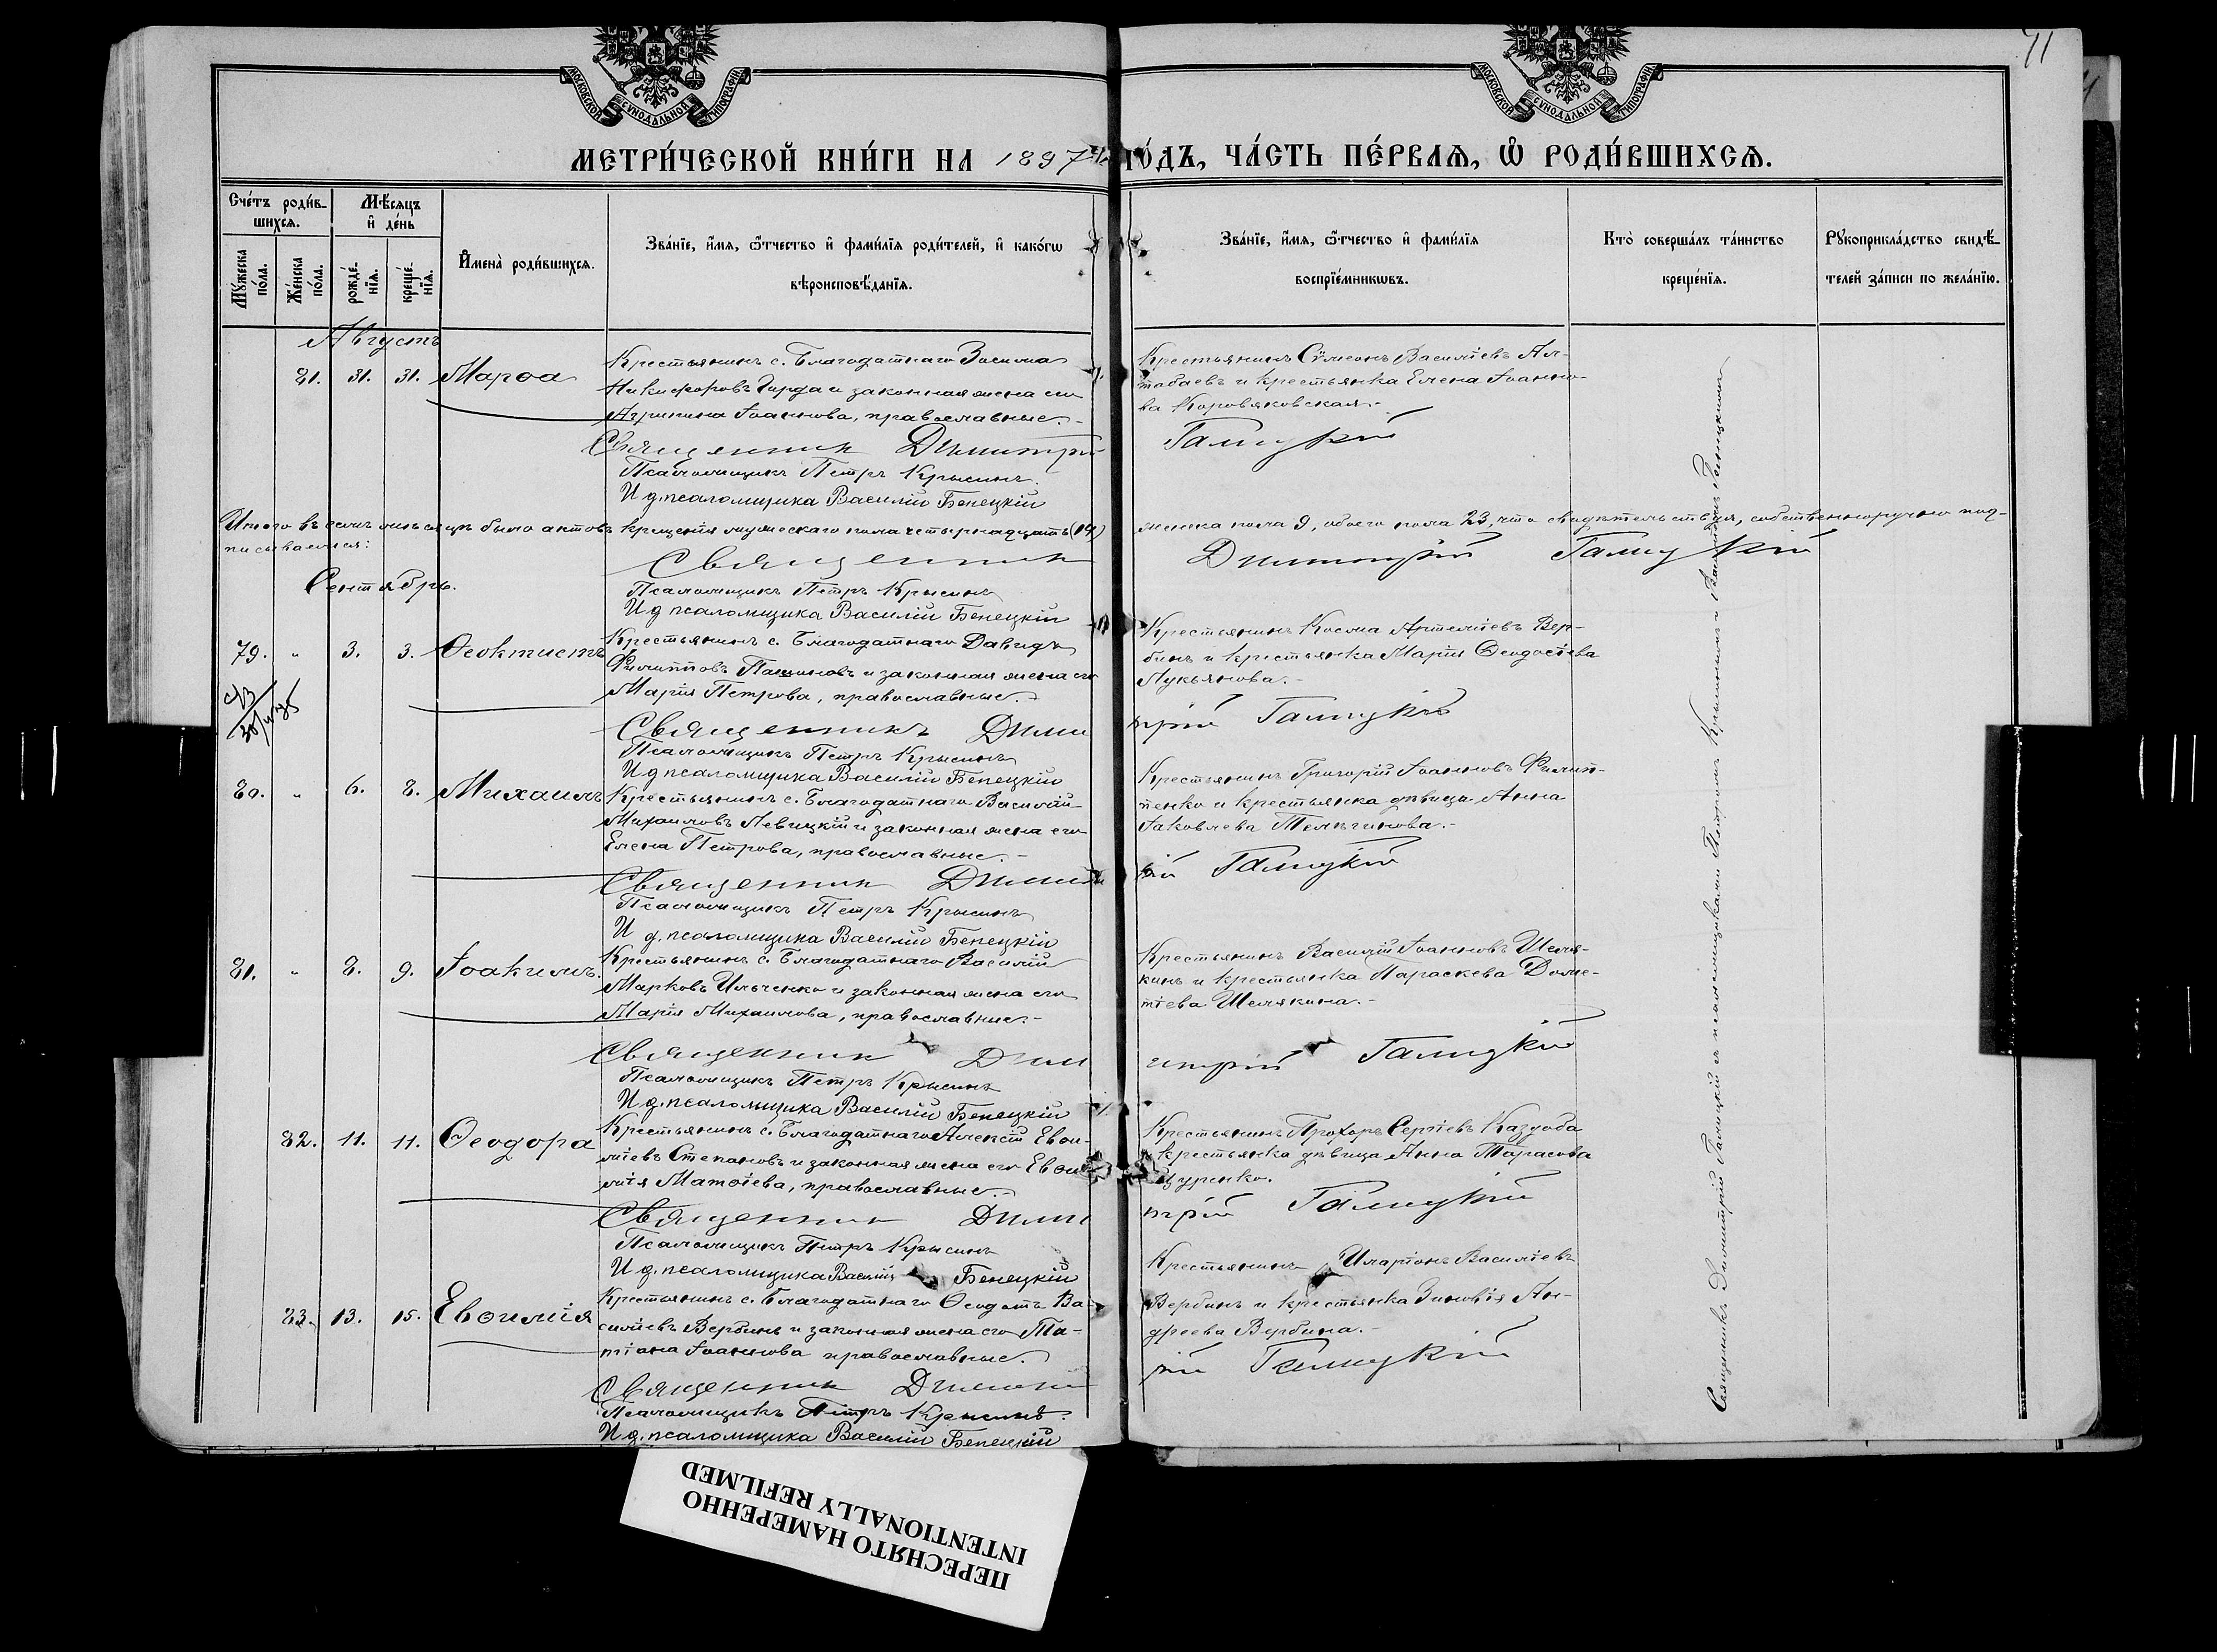 71
МОСКОВСКОЙ СѴНОДАЛЬНОЙ ТИПОГРАФІИ
МОСКОВСКОЙ СѴНОДАЛЬНОЙ ТИПОГРАФІИ
МЕТРИ́ЧЕСКОЙ КНИ́ГИ НА 1897 ГО́ДЪ, ЧА́СТЬ ПЕ́РВАЯ, Ѡ РОДИ́ВШИХСѦ.
Сче́тъ роди́в-
шихсѧ.
Мѣ́сѧцъ
и де́нь
Мꙋ́жеска
по́ла.
Же́нска
по́ла.
рожде́-
нїѧ.
креще́-
нїѧ.
Имена̀ роди́вшихсѧ.
Зва́нїе, и́мѧ, ѻ́тчество и фами́лїѧ роди́телей, и како́гѡ
вѣроисповѣ́данїѧ.
Зва́нїе, и́мѧ, ѻ́тчество и фами́лїѧ
воспрїе́мникѡвъ.
Кто̀ соверша́лъ та́инство
креще́нїѧ.
Рꙋкоприкла́дство свидѣ́-
телей за́писи по жела́нїю.
Августъ
81. 31. 31. Марѳа
Крестьянинъ с. Благодатнаго Зосима
Никифоровъ Гирда и законная жена его
Агрипина Іоаннова, православные.-
Крестьянинъ Сѵмеонъ Василіевъ Ал-
табаевъ и крестьянка Елена Іоанно-
ва Коровяковская.-
Священник Димитрій Галицкій
Псаломщикъ Петръ Крысинъ.
И д. псаломщика Василій Бенецкій
Итого въ семъ мѣсяцѣ было актовъ крещенія мужескаго пола четырнадцать (14) женска пола 9, обоего пола 23, что свидѣтельствуя, собственноручно под-
писываемся:
Священник Димитрій Галицкій
Псаломщикъ Петръ Крысинъ
И д псаломщика Василій Бенецкій
Сентябрь.
79. " 3. 3. Ѳеоктистъ
Крестьянинъ с. Благодатнаго Давидъ
Филипповъ Пашиновъ и законная жена его
Марія Петрова, православные.-
Крестьянинъ Косма Артеміевъ Вер-
бинъ и крестьянка Марія Ѳеодосіева
Лукьянова.-
Священникъ Димитрій Галицкій
Псаломщикъ Петръ Крысинъ
И д псаломщика Василій Бенецкій
80. " 6. 8. Михаилъ
Крестьянинъ с. Благодатнаго Василій
Михаиловъ Левицкій и законная жена его
Елена Петрова, православные.-
Крестьянинъ Григорій Іоанновъ Филип-
пенко и крестьянка дѣвица Анна
Іаковлева Телѣгинова.-
Священник Димитрій Галицкій
Псаломщикъ Петръ Крысинъ
И д. псаломщика Василій Бенецкій
81. " 8. 9. Іоакимъ.
Крестьянинъ с. Благодатнаго Василій
Марковъ Ильченко и законная жена его
Марія Михаилова, православные.-
Крестьянинъ Василій Іоанновъ Шемя-
кинъ и крестьянка Параскева Доме-
тіева Шемякина.-
Священник Димитрій Галицкій
Псаломщикъ Петръ Крысинъ
И д. псаломщика Василій Бенецкій
82. 11. 11. Ѳеодора
Крестьянинъ с. Благодатнаго Алексій Евѳи-
міевъ Степановъ и законная жена его Евѳи-
мія Матѳіева, православные.-
Крестьянинъ Прохоръ Сергіевъ Кадуоба
и крестьянка дѣвица Анна Тарасова
Щуренко.
Священник Димитрій Галицкій
Псаломщикъ Петръ Крысинъ
И д. псаломщика Василій Бенецкій
83. 13. 15. Евѳимія
Крестьянинъ с. Благодатнаго Ѳеодотъ Ва-
силіевъ Вербинъ и законная жена его Та-
тіана Іоаннова православные.
Крестьянинъ Иларіонъ Василіевъ
Вербинъ и крестьянка Зиновія Ан-
дреева Вербина.-
Священник Димитрій Галицкій
Псаломщикъ Петръ Крысинъ.
И д. псаломщика Василій Бенецкій
Священникъ Димитрій Галицкій съ псаломщиками Петромъ Крысинымъ и Василіемъ Бенецкимъ
ПЕРЕСНЯТО НАМЕРЕННО
INTENTIONALLY REFILMED